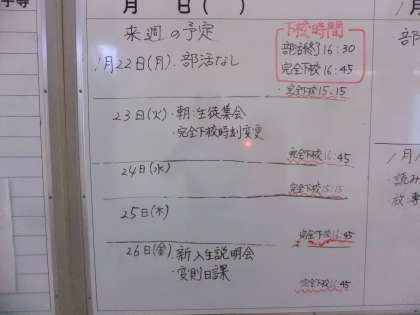 月　日(　)
来週の予定
下校時間
部活終了 16:30
完全下校 16:45
1月22日(月) 部活なし
完全下校 15:15
23日(火)・朝:生徒集会
・完全下校時刻変更
完全下校 16:45
24日(水)
完全下校 15:15
25日(木)
完全下校 16:45
26日(金)・新入生説明会
・変則日課
完全下校 16:45